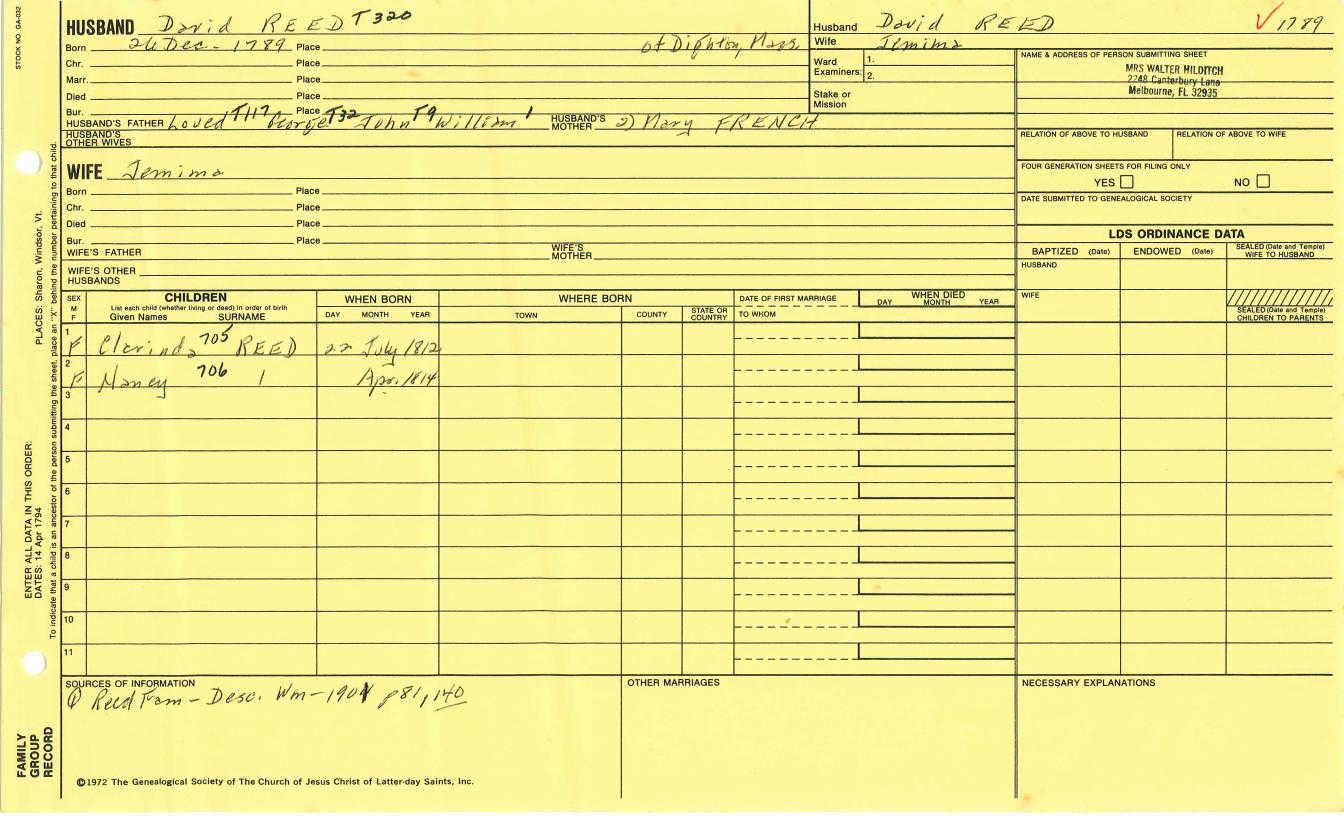 STOCK NO. GA-032
HUSBAND David REED T320
Born 26 Dec - 1789 Place of Dighton, Mass.
Chr. Place
Marr. Place
Died Place
Bur. Place
HUSBAND'S FATHER Loved T117 George T32 John T9 William 1 HUSBAND'S MOTHER 2) Mary FRENCH
HUSBAND'S OTHER WIVES
Husband David REED 1789
Wife Jemima
Ward Examiners: 1.
2.
Stake or Mission
NAME & ADDRESS OF PERSON SUBMITTING SHEET
MRS WALTER HILDITCH
2248 Canterbury Lane
Melbourne, FL 32935
RELATION OF ABOVE TO HUSBAND RELATION OF ABOVE TO WIFE
FOUR GENERATION SHEETS FOR FILING ONLY
YES NO
DATE SUBMITTED TO GENEALOGICAL SOCIETY
WIFE Jemima
Born Place
Chr. Place
Died Place
Bur. Place
WIFE'S FATHER WIFE'S MOTHER
WIFE'S OTHER HUSBANDS
LDS ORDINANCE DATA
BAPTIZED (Date) ENDOWED (Date) SEALED (Date and Temple) WIFE TO HUSBAND
HUSBAND
WIFE
SEALED (Date and Temple) CHILDREN TO PARENTS
SEX M F
CHILDREN
List each child (whether living or dead) in order of birth
Given Names SURNAME
WHEN BORN
DAY MONTH YEAR
WHERE BORN
TOWN COUNTY STATE OR COUNTRY
DATE OF FIRST MARRIAGE
TO WHOM
WHEN DIED
DAY MONTH YEAR
1 F Clarinda 705 REED 22 July 1812
2 F Nancy 706 1 Apr. 1814
3
4
5
6
7
8
9
10
11
SOURCES OF INFORMATION
① Reed Fam - Desc. Wm - 1901 p81, 140
OTHER MARRIAGES
NECESSARY EXPLANATIONS
©1972 The Genealogical Society of The Church of Jesus Christ of Latter-day Saints, Inc.
FAMILY GROUP RECORD
ENTER ALL DATA IN THIS ORDER:
DATES: 14 Apr 1794 PLACES: Sharon, Windsor, Vt.
To indicate that a child is an ancestor of the person submitting the sheet, place an "X" behind the number pertaining to that child.